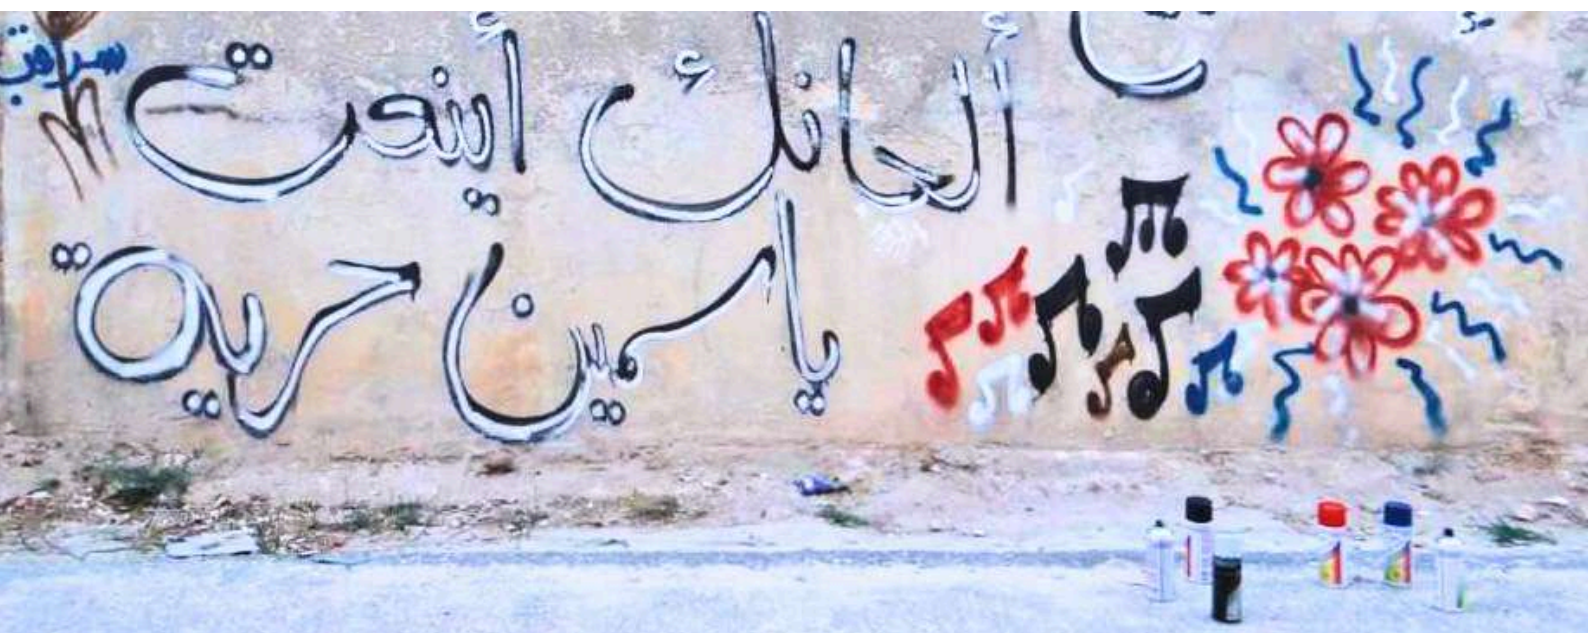 ألحانك أينعت
ياسمين حرية